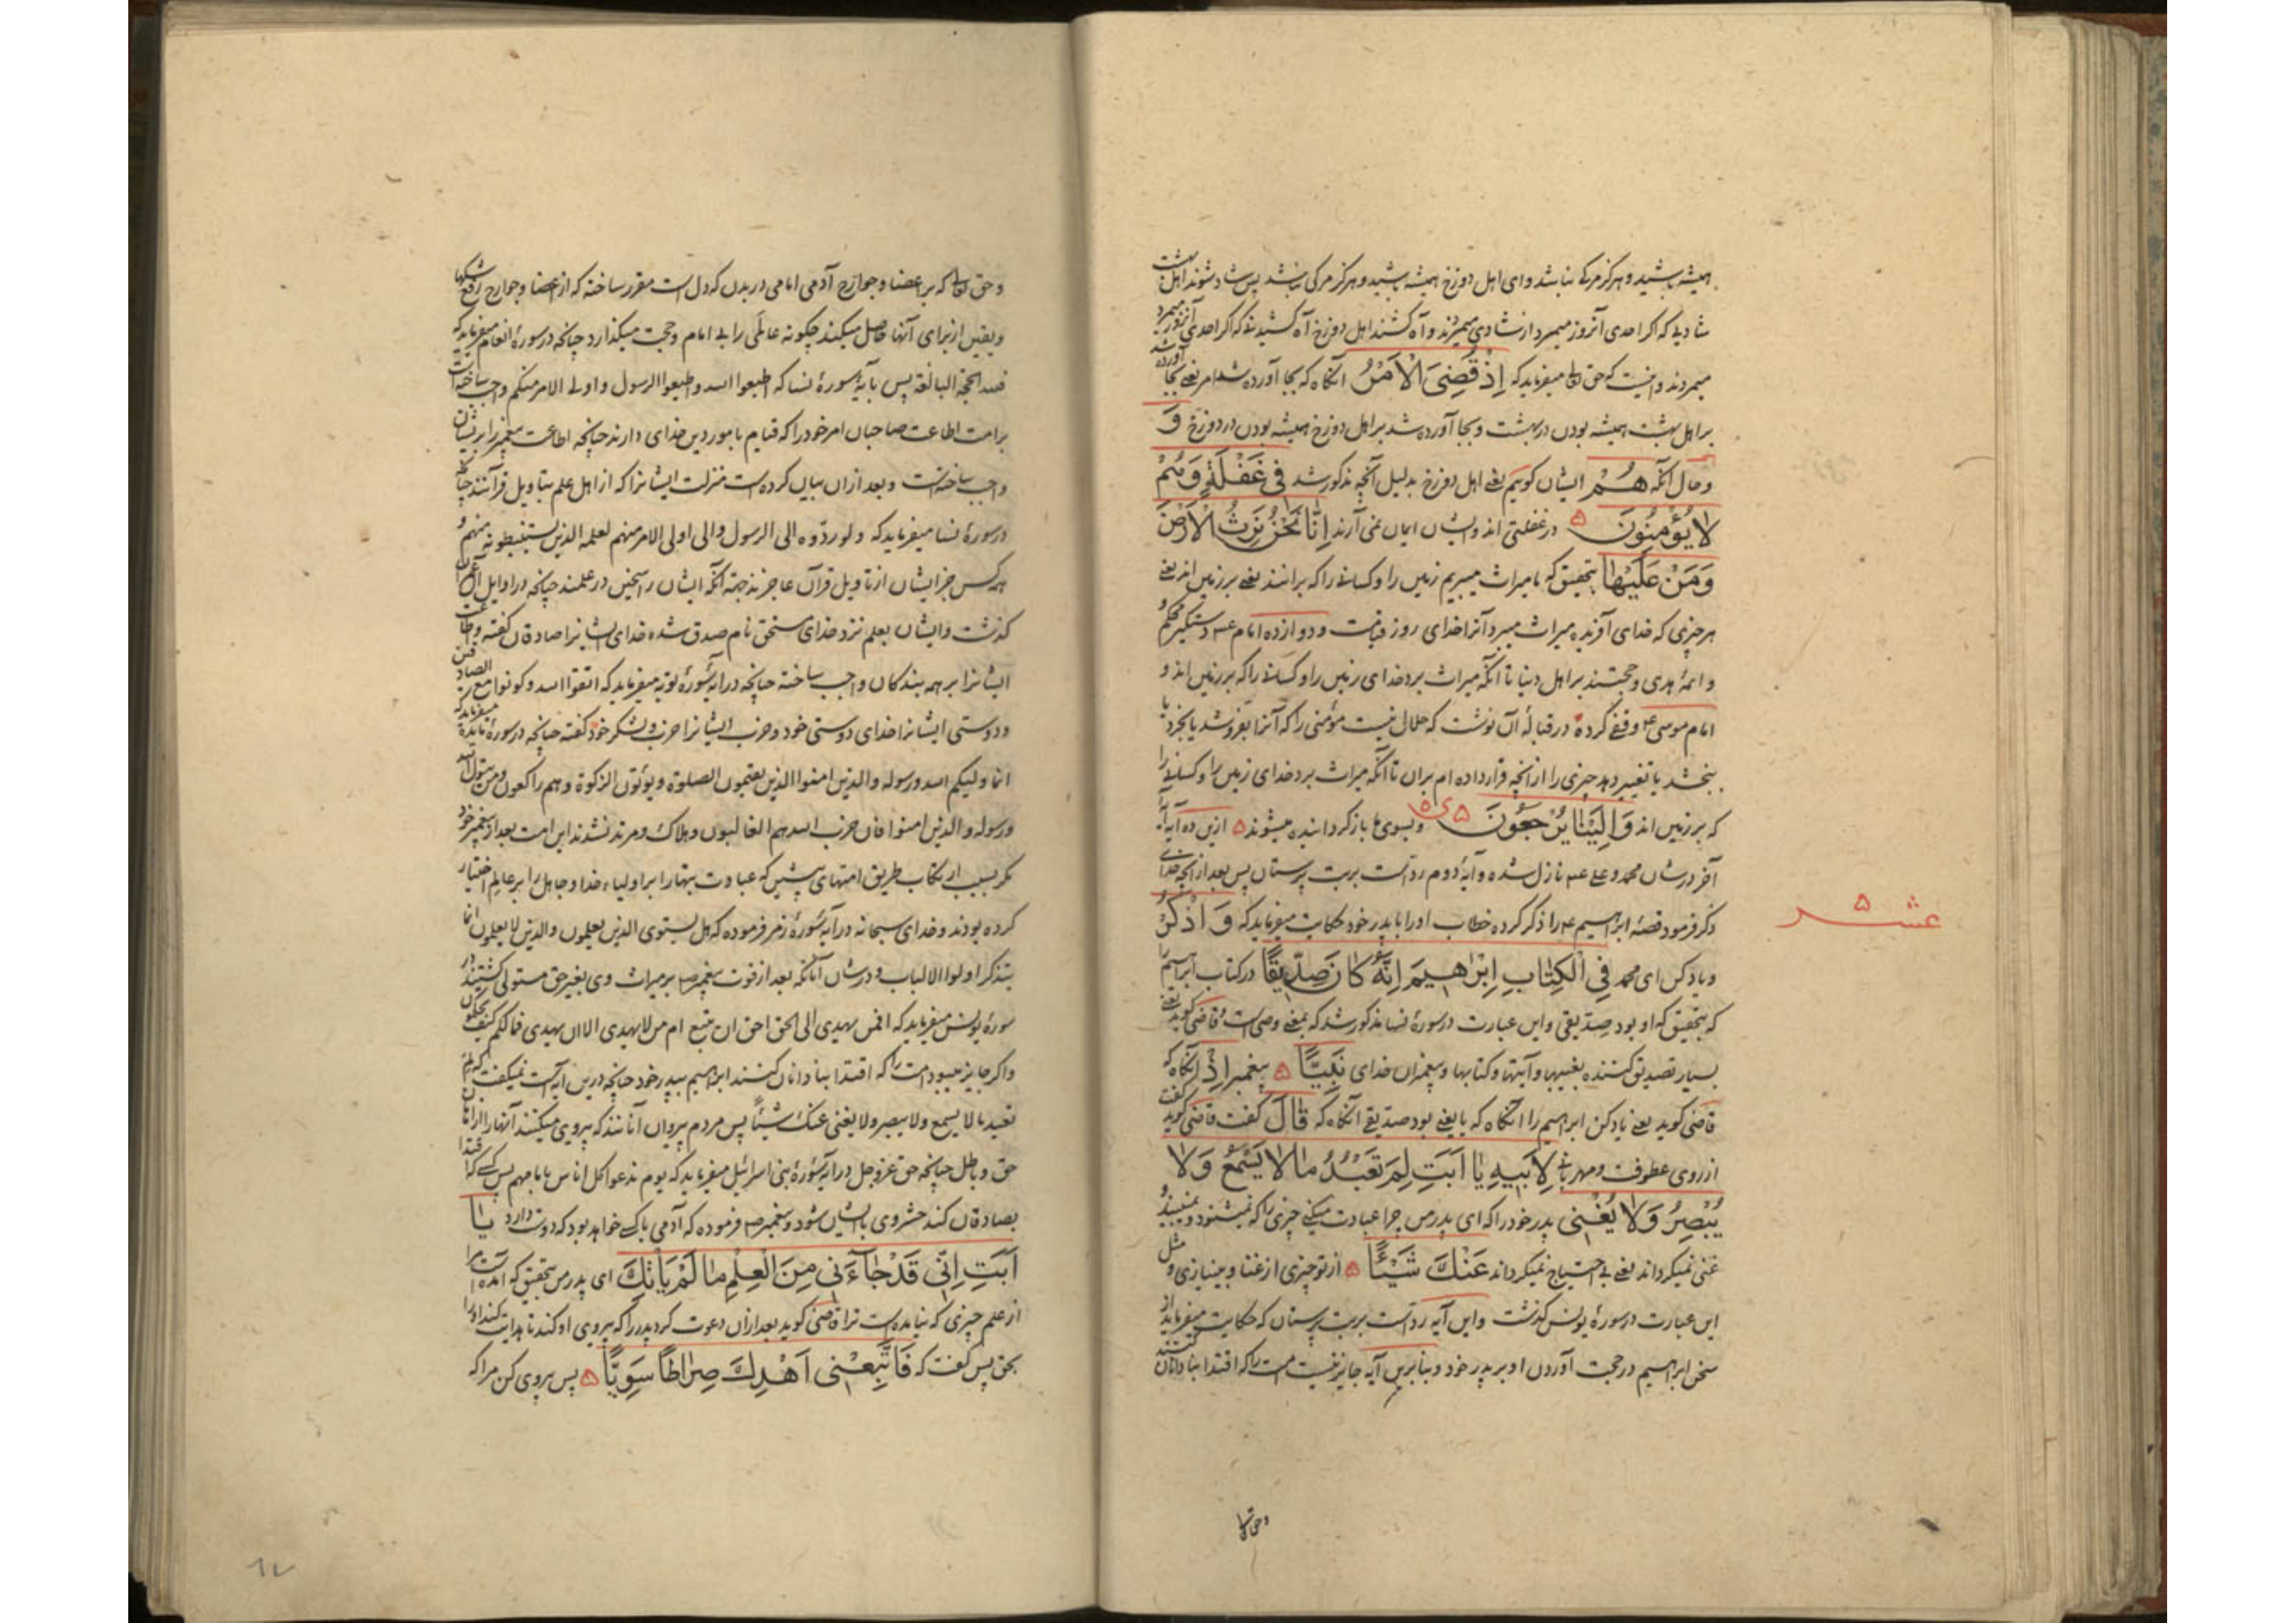 همیشه باشید و هرگز مرگی نباشد و ای اهل دوزخ همیشه باشید و هرگز مرگی نباشد پس شاد شوند اهل بهشت
شادیی که اگر احدی آنروز میمرد از شادی میمردند و آه کشند اهل دوزخ آه کشیدنی که اگر احدی آنروز میمرد
میمردند و اینست که حق تعالی میفرماید که اِذْ قُضِیَ الْاَمْرُ آنگاه که بجا آورده شد امر یعنی بجا آورده شد
بر اهل بهشت همیشه بودن در بهشت و بجا آورده شد بر اهل دوزخ همیشه بودن در دوزخ وَ
و حال آنکه هُمْ ایشان گوییم یعنی اهل دوزخ بدلیل آنچه مذکور شد فی غَفْلَةٍ وَهُمْ
لا یُؤْمِنُونَ ۵ در غفلتی اند و ایشان ایمان نمی آرند اِنَّا نَحْنُ نَرِثُ الْاَرْضَ
وَمَنْ عَلَیْها بتحقیق که ما میراث میبریم زمین را و کسانی را که بر آنند یعنی بر زمین اند یعنی
هر چیزی که خدای آفریده میراث میبرد آنرا خدای روز قیامت و دوازده امام ع دستگیر محکم و
و ائمۀ هدی و حجتند بر اهل دنیا تا آنکه میراث برد خدای زمین را و کسانی را که بر زمین اند و
امام موسی ع وقفی کرده در قبالۀ آن نوشت که حلال نیست مؤمنی را که آنرا بفروشد یا بخرد یا
ببخشد یا تغییر دهد چیزی را از آنچه قرار داده ام بران تا آنکه میراث برد خدای زمین را و کسانی را
که بر زمین اند وَ اِلَیْنا یُرْجَعُونَ ۵ و بسوی ما باز گردانیده میشوند ۵ ازین ده آیه آیۀ
آخر در شان محمد و علی ع نازل شده و آیۀ دوم ردّ است بر بت پرستان پس بعد از آنچه خدای
عشر ۵
ذکر فرمود قصۀ ابراهیم ع را ذکر کرده خطاب او را با پدر خود حکایت میفرماید که وَ اذْکُرْ
و یاد کن ای محمد فِی الْکِتابِ اِبْراهیمَ اِنَّهُ کانَ صِدّیقًا در کتاب ابراهیم را
که بتحقیق که او بود صدّیقی و این عبارت در سورۀ نسا مذکور شد که بمعنی وصی است و قاضی گوید یعنی
بسیار تصدیق کننده بغیبها و آیتها و کتابها و پیغمبران خدای نَبِیًّا ۵ پیغمبر اِذْ آنگاه که
قاضی گوید یعنی یاد کن ابراهیم را آنگاه که یا یعنی بود صدیقی آنگاه که قالَ گفت قاضی گوید گفت
از روی عطوفت و مهربانی لِاَبیهِ یا اَبَتِ لِمَ تَعْبُدُ ما لا یَسْمَعُ وَلا
یُبْصِرُ وَلا یُغْنی پدر خود را که ای پدر من چرا عبادت میکنی چیزی را که نمیشنود و نمیبیند و
غنی نمیگرداند یعنی بی احتیاج نمیگرداند عَنْکَ شَیْئًا ۵ از تو چیزی از غنا و بینیازی و مثل
این عبارت در سورۀ یونس گذشت و این آیه ردّ است بر بت پرستان که حکایت میفرماید از
سخن ابراهیم در حجت آوردن او بر پدر خود و بنابرین آیه جایز نیست امت را که اقتدا بنادانان کنند
و حق تعالی
و حق تعالی که بر اعضا و جوارح آدمی امامی در بدن که دل است مقرر ساخته که از اعضا و جوارح رفع شکها
و یقین از برای آنها حاصل میکند چگونه عالمی را بی امام و حجت میگذارد چنانچه در سورۀ انعام میفرماید که
فلله الحجة البالغة پس بآیۀ سورۀ نسا که اطیعوا الله و اطیعوا الرسول و اولی الامر منکم واجب ساخته است
بر امت اطاعت صاحبان امر خود را که قیام بامور دین خدای دارند چنانچه اطاعت پیغمبر را بر ایشان
واجب ساخته است و بعد از ان بیان کرده است منزلت ایشانرا که از اهل علم بتاویل قرآنند چنانکه
در سورۀ نسا میفرماید که و لو ردّوه الی الرسول و الی اولی الامر منهم لعلمه الذین یستنبطونه منهم و
همه کس جز ایشان از تاویل قرآن عاجزند جهة آنکه ایشان راسخین در علمند چنانچه در اوایل آل عمران
گذشت و ایشان بعلم نزد خدای مستحق نام صدق شده خدای ایشانرا صادقان گفته و اطاعت
ایشانرا بر همه بندگان واجب ساخته چنانچه در آیۀ سورۀ توبه میفرماید که اتقوا الله و کونوا مع الصادقین
و دوستی ایشانرا خدای دوستی خود و حزب ایشانرا حزب و لشکر خود گفته چنانچه در سورۀ مایده میفرماید که
انما ولیکم الله و رسوله و الذین امنوا الذین یقیمون الصلوة و یؤتون الزکوة و هم راکعون و من یتول الله
و رسوله و الذین امنوا فان حزب الله هم الغالبون و هلاک و مرتد نشدند این امت بعد از پیغمبر خود
مگر بسبب ارتکاب طریق امتهای پیشین که عبادت بتها را بر اولیاء خدا و جاهل را بر عالم اختیار
کرده بودند و خدای سبحانه در آیۀ سورۀ زمر فرموده که هل یستوی الذین یعلمون و الذین لا یعلمون انما
یتذکر اولوا الالباب و در شان آنانکه بعد از فوت پیغمبر ص بر میراث وی بغیر حق مستولی گشتند در
سورۀ یونس میفرماید که افمن یهدی الی الحق احق ان یتبع ام من لا یهدی الا ان یهدی فما لکم کیف تحکمون
و اگر جایز میبود امت را که اقتدا بنادانان کنند ابراهیم بپدر خود چنانچه درین آیه است نمیگفت که لم
تعبد ما لا یسمع و لا یبصر و لا یغنی عنک شیئًا پس مردم پیروان آنانند که پیروی میکنند آنها را از امامان
حق و باطل چنانچه حق عز و جل در آیۀ سورۀ بنی اسرائیل میفرماید که یوم ندعوا کل اناس بامامهم پس کسی که اقتدا
بصادقان کند حشر وی با ایشان شود و پیغمبر ص فرموده که آدمی با کسی خواهد بود که دوست دارد یا
اَبَتِ اِنّی قَدْ جاءَنی مِنَ الْعِلْمِ ما لَمْ یَأْتِکَ ای پدر من بتحقیق که آمده است مرا
از علم چیزی که نیامده است ترا قاضی گوید بعد از ان دعوت کرد پدر را که پیروی او کند تا هدایت کند او را
بحق پس گفت که فَاتَّبِعْنی اَهْدِکَ صِراطًا سَوِیًّا ۵ پس پیروی کن مرا که